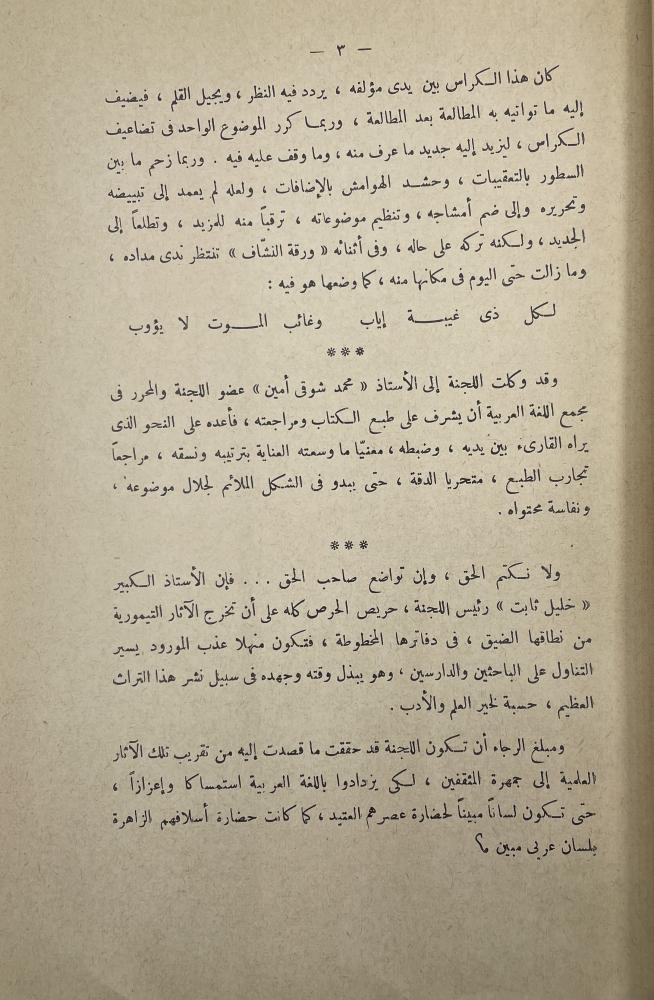 — ٣ —
كان هذا الكراس بين يدى مؤلفه ، يردد فيه النظر ، ويجيل القلم ، فيضيف
إليه ما تواتيه به المطالعة بعد المطالعة ، وربما كرر الموضوع الواحد فى تضاعيف
الكراس ، ليزيد إليه جديد ما عرف منه ، وما وقف عليه فيه . وربما زحم ما بين
السطور بالتعقيبات ، وحشد الهوامش بالإضافات ، ولعله لم يعمد إلى تبييضه
وتحريره وإلى ضم أمشاجه ، وتنظيم موضوعاته ، ترقباً منه للمزيد ، وتطلعاً إلى
الجديد ، ولكنه تركه على حاله ، وفى أثنائه « ورقة النشّاف » تنتظر ندى مداده ،
وما زالت حتى اليوم فى مكانها منه ، كما وضعها هو فيه :
لكل ذى غيبة إياب وغائب الموت لا يؤوب
***
وقد وكلت اللجنة إلى الأستاذ « محمد شوقى أمين » عضو اللجنة والمحرر فى
مجمع اللغة العربية أن يشرف على طبع الكتاب ومراجعته ، فأعده على النحو الذى
يراه القارىء بين يديه ، وضبطه ، معنيّا ما وسعته العناية بترتيبه ونسقه ، مراجعاً
تجارب الطبع ، متحريا الدقة ، حتى يبدو فى الشكل الملائم لجلال موضوعه ،
ونفاسة محتواه .
***
ولا نكتم الحق ، وإن تواضع صاحب الحق ... فإن الأستاذ الكبير
« خليل ثابت » رئيس اللجنة ، حريص الحرص كله على أن تخرج الآثار التيمورية
من نطاقها الضيق ، فى دفاترها المخطوطة ، فتكون منهلا عذب المورود يسير
التناول على الباحثين والدارسين ، وهو يبذل وقته وجهده فى سبيل نشر هذا التراث
العظيم ، حسبة لخير العلم والأدب .
ومبلغ الرجاء أن تكون اللجنة قد حققت ما قصدت إليه من تقريب تلك الآثار
العلمية إلى جمهرة المثقفين ، لكى يزدادوا باللغة العربية استمساكا وإعزازاً ،
حتى تكون لساناً مبيناً لحضارة عصرهم العتيد ، كما كانت حضارة أسلافهم الزاهرة
بلسان عربى مبين